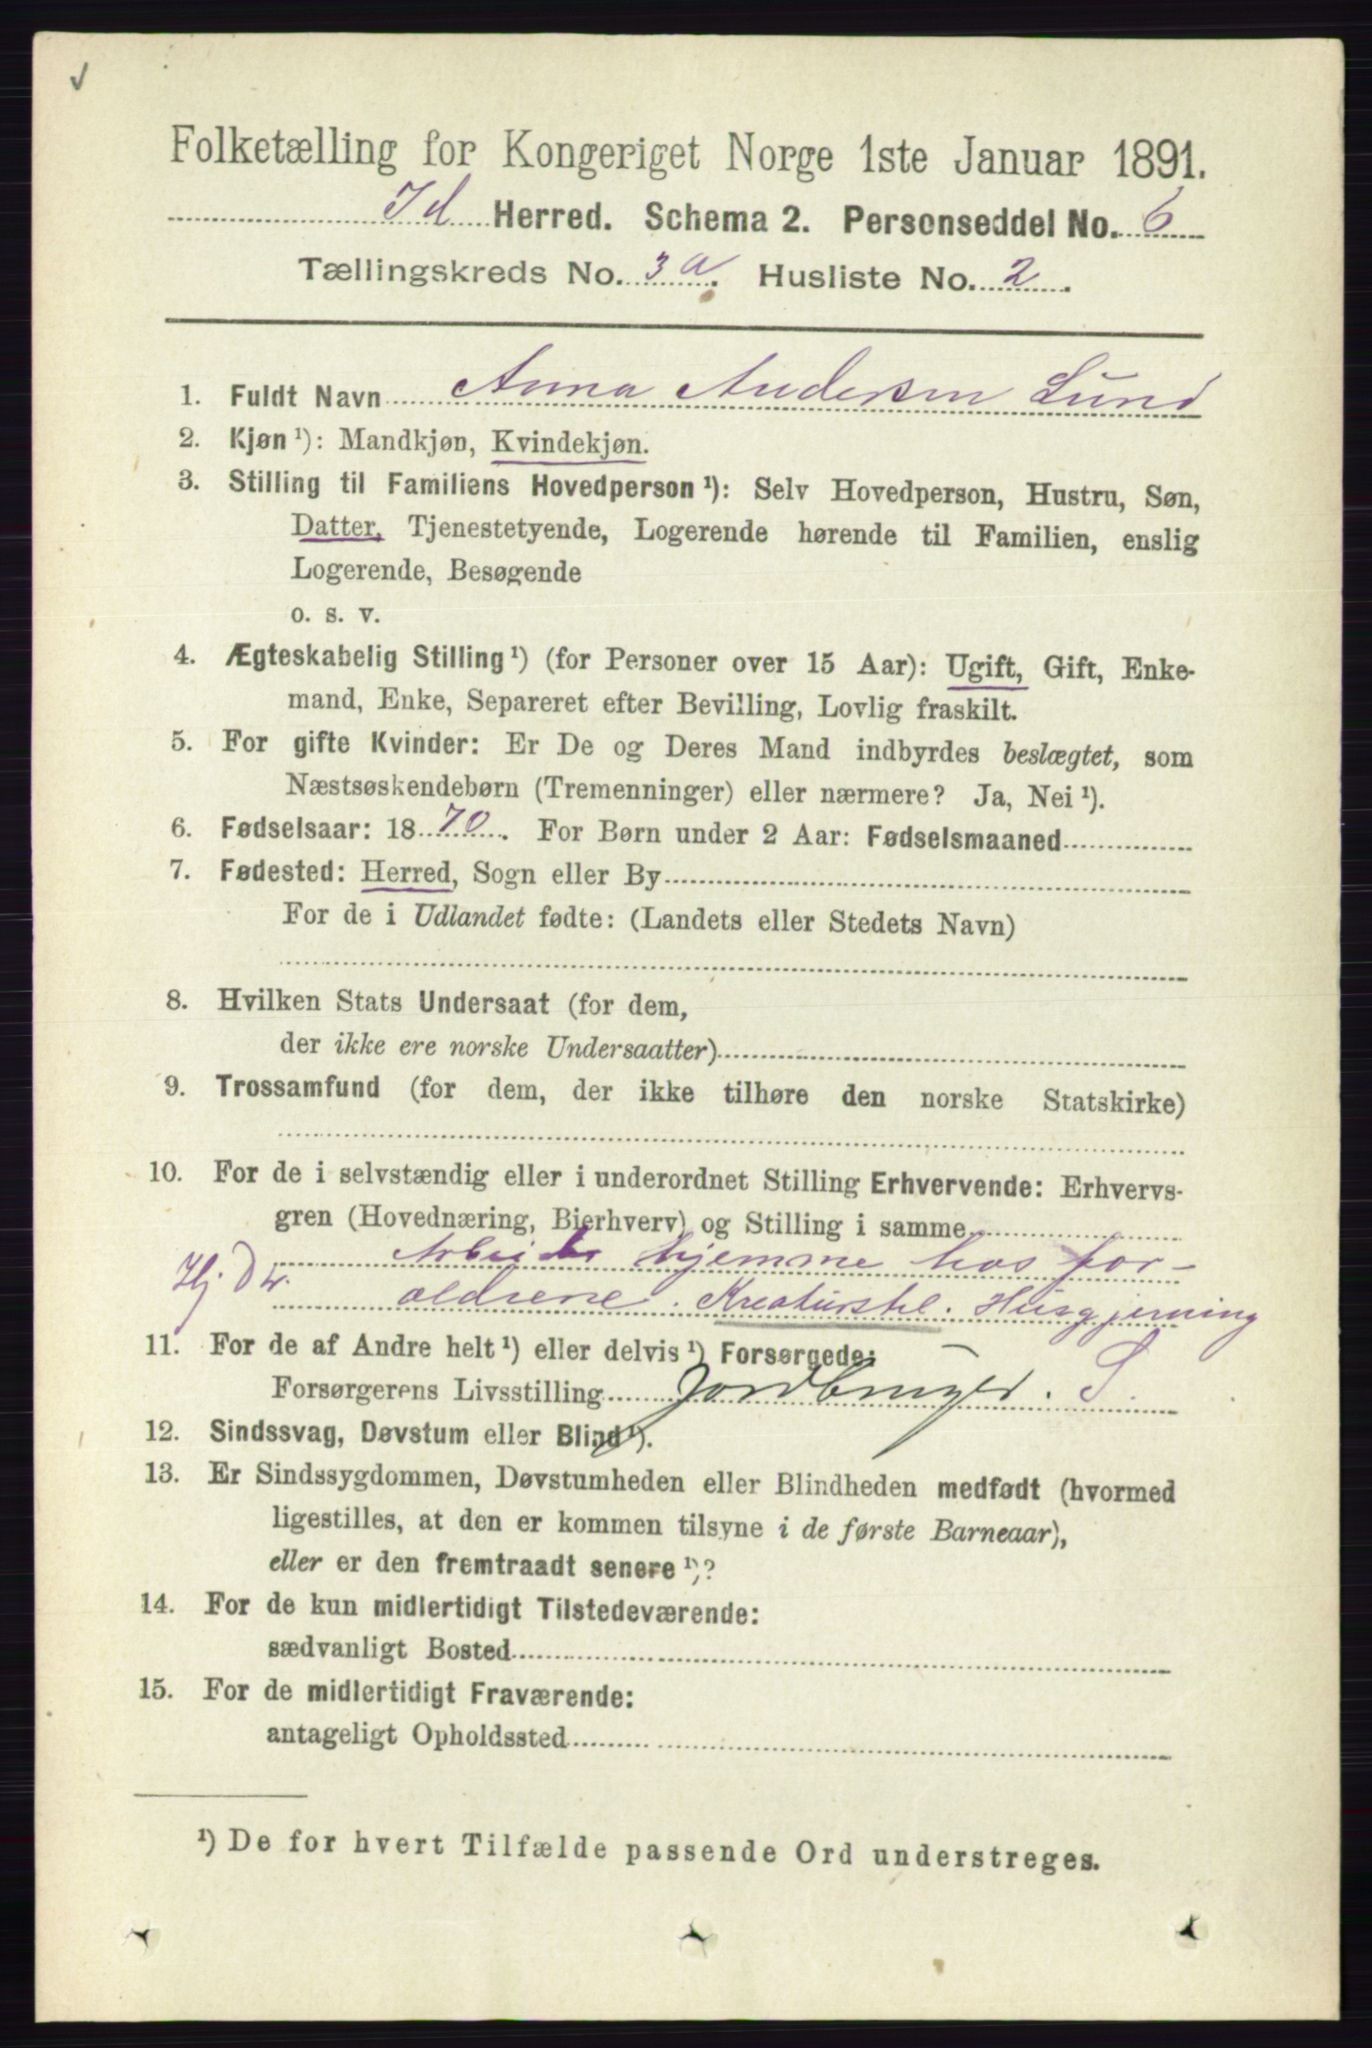 Folketælling for Kongeriget Norge 1ste Januar 1891.
Id Herred. Schema 2. Personseddel No. 6
Tællingskreds No. 3a. Husliste No. 2.
1. Fuldt Navn Anna Andersen Lund
2. Kjøn ¹): Mandkjøn, Kvindekjøn.
3. Stilling til Familiens Hovedperson ¹): Selv Hovedperson, Hustru, Søn,
Datter, Tjenestetyende, Logerende hørende til Familien, enslig
Logerende, Besøgende
o. s. v.
4. Ægteskabelig Stilling ¹) (for Personer over 15 Aar): Ugift, Gift, Enke-
mand, Enke, Separeret efter Bevilling, Lovlig fraskilt.
5. For gifte Kvinder: Er De og Deres Mand indbyrdes beslægtet, som
Næstsøskendebørn (Tremenninger) eller nærmere? Ja, Nei ¹).
6. Fødselsaar: 1870. For Børn under 2 Aar: Fødselsmaaned
7. Fødested: Herred, Sogn eller By
For de i Udlandet fødte: (Landets eller Stedets Navn)
8. Hvilken Stats Undersaat (for dem,
der ikke ere norske Undersaatter)
9. Trossamfund (for dem, der ikke tilhøre den norske Statskirke)
10. For de i selvstændig eller i underordnet Stilling Erhvervende: Erhvervs-
gren (Hovednæring, Bierhverv) og Stilling i samme
Arbeider hjemme hos for-
Hj Dtr. ældrene. Kreaturstel. Husgjerning
11. For de af Andre helt ¹) eller delvis ¹) Forsørgede:
Forsørgerens Livsstilling Jordbruger. S.
12. Sindssvag, Døvstum eller Blind ¹).
13. Er Sindssygdommen, Døvstumheden eller Blindheden medfødt (hvormed
ligestilles, at den er kommen tilsyne i de første Barneaar),
eller er den fremtraadt senere ¹)?
14. For de kun midlertidigt Tilstedeværende:
sædvanligt Bosted
15. For de midlertidigt Fraværende:
antageligt Opholdssted
¹) De for hvert Tilfælde passende Ord understreges.